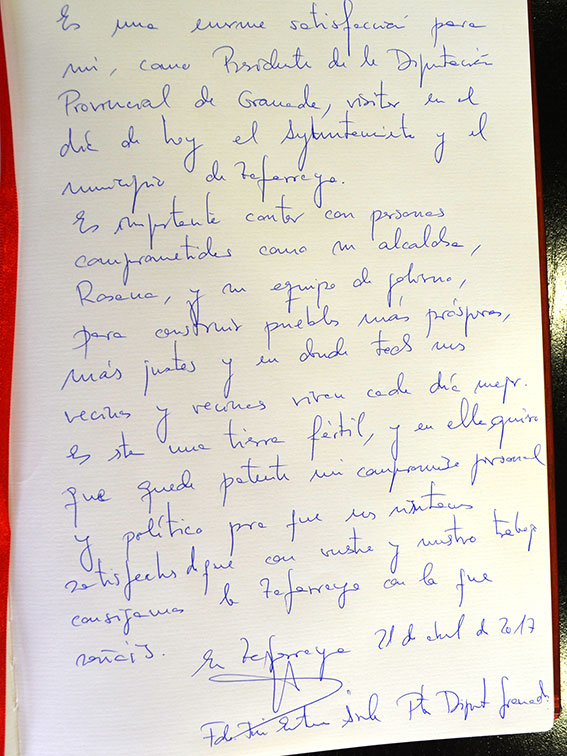 Es una enorme satisfacción para
mi, como Presidente de la Diputación
Provincial de Granada, visitar en el
día de hoy el Ayuntamiento y el
municipio de Zafarraya.
Es importante contar con personas
comprometidas como su alcaldesa,
Rosana, y su equipo de gobierno,
para construir pueblos más prósperos,
más justos y en donde todos sus
vecinos y vecinas viven cada día mejor.
Es ste una tierra fértil, y en ella quiero
que quede patente mi compromiso personal
y político para que nos sintamos
satisfechos de que con vuestro y nuestro trabajo
consigamos la Zafarraya con la que
soñáis.
En Zafarraya 21 de abril de 2017
Fdo Entrena Pte Diput Granada